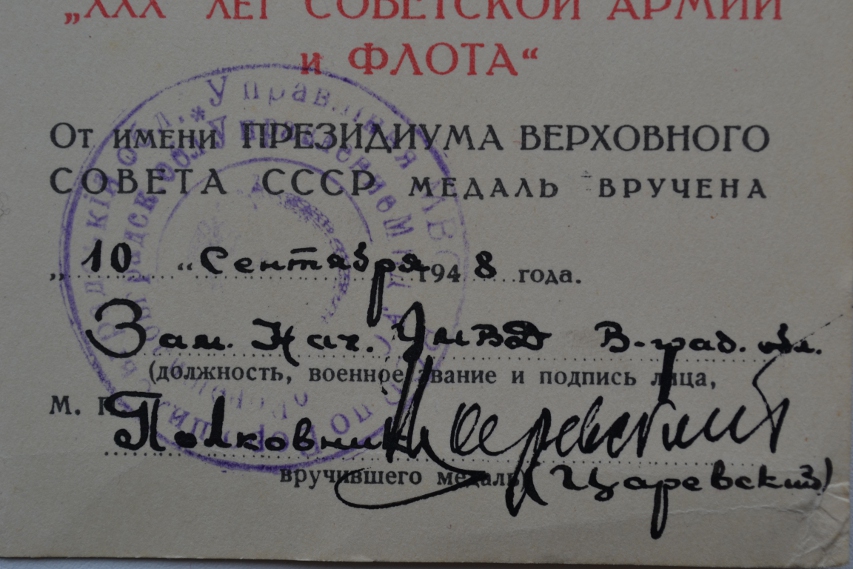 „XXX ЛЕТ СОВЕТСКОЙ АРМИИ
и ФЛОТА“
От имени ПРЕЗИДИУМА ВЕРХОВНОГО
СОВЕТА СССР МЕДАЛЬ ВРУЧЕНА
„10 “ Сентября 1948 года.
Зам. Нач. УМВД В-град. обл.
(должность, военное звание и подпись лица,
М. П. Полковник Царевский
вручившего медаль) (Царевский)